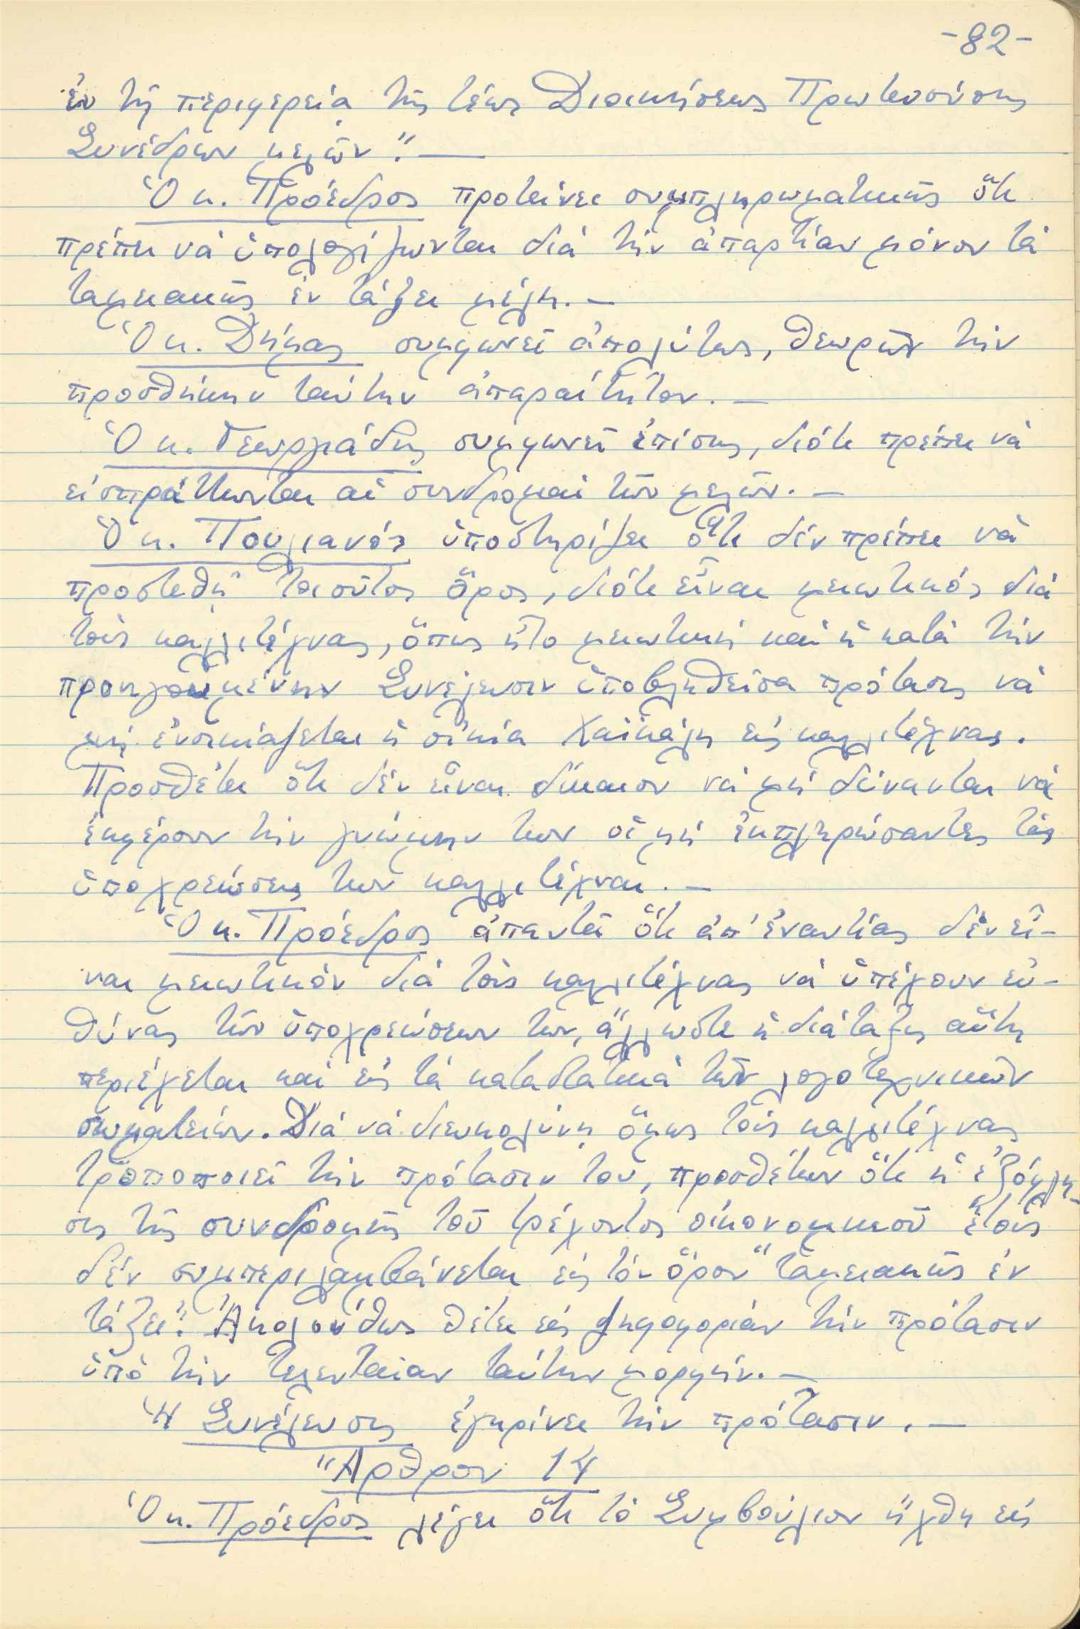 -82-
ἐν τῇ περιφερείᾳ τῆς τέως Διοικήσεως Πρωτευούσης
Συνέδρων μελῶν". —
Ὁ κ. Πρόεδρος προτείνει συμπληρωματικῶς ὅτι
πρέπει νά ὑπολογίζωνται διά τήν ἀπαρτίαν μόνον τά
ταμειακῶς ἐν τάξει μέλη. —
Ὁ κ. Δήμας συμφωνεῖ ἀπολύτως, θεωρῶν τήν
προσθήκην ταύτην ἀπαραίτητον. —
Ὁ κ. Γεωργιάδης συμφωνεῖ ἐπίσης, διότι πρέπει νά
εἰσπράττωνται αἱ συνδρομαί τῶν μελῶν. —
Ὁ κ. Πουλιανός ὑποστηρίζει ὅτι δέν πρέπει νά
προστεθῇ τοιοῦτος ὅρος, διότι εἶναι μειωτικός διά
τούς καλλιτέχνας, ὅπως ἦτο μειωτική καί ἡ κατά τήν
προηγουμένην Συνέλευσιν ὑποβληθεῖσα πρότασις νά
μή ἐνοικιάζεται ἡ οἰκία Χαϊκάλη εἰς καλλιτέχνας.
Προσθέτει ὅτι δέν εἶναι δίκαιον νά μή δύνανται νά
ἐκφέρουν τήν γνώμην των οἱ μή ἐκπληρώσαντες τάς
ὑποχρεώσεις των καλλιτέχναι. —
Ὁ κ. Πρόεδρος ἀπαντᾶ ὅτι ἀπ' ἐναντίας δέν εἶ-
ναι μειωτικόν διά τούς καλλιτέχνας νά ὑπέχουν εὐ-
θύνας τῶν ὑποχρεώσεων των, ἄλλωστε ἡ διάταξις αὕτη
περιέχεται καί εἰς τά καταστατικά τῶν λογοτεχνικῶν
σωματείων. Διά νά διευκολύνῃ ὅμως τούς καλλιτέχνας
τροποποιεῖ τήν πρότασίν του, προσθέτων ὅτι ἡ ἐξόφλη-
σις τῆς συνδρομῆς τοῦ τρέχοντος οἰκονομικοῦ ἔτους
δέν συμπεριλαμβάνεται εἰς τόν ὅρον "ταμειακῶς ἐν
τάξει". Ἀκολούθως θέτει εἰς ψηφοφορίαν τήν πρότασιν
ὑπό τήν τελευταίαν ταύτην μορφήν. —
Ἡ Συνέλευσις ἐγκρίνει τήν πρότασιν. —
Ἄρθρον 14
Ὁ κ. Πρόεδρος λέγει ὅτι τό Συμβούλιον ἤχθη εἰς